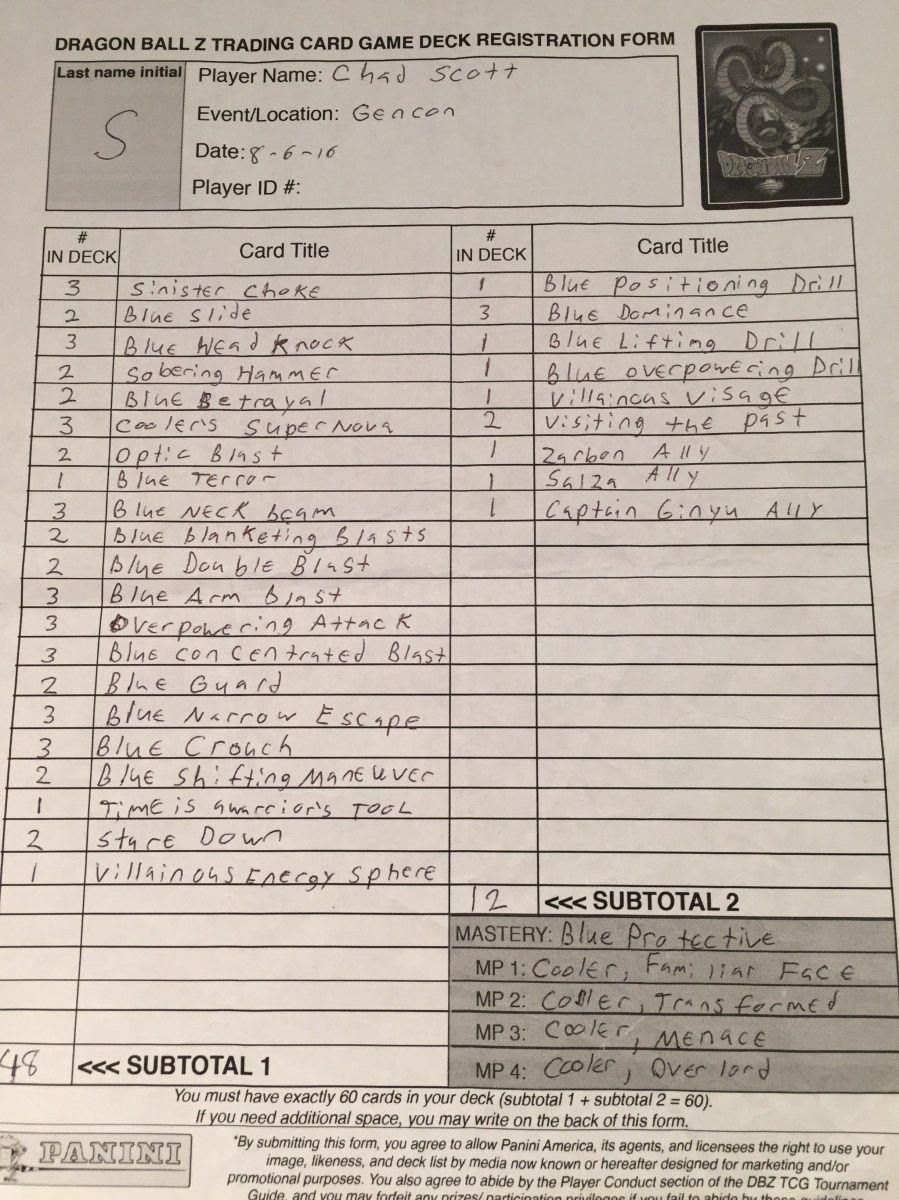 DRAGON BALL Z TRADING CARD GAME DECK REGISTRATION FORM
Last name initial
S
Player Name: Chad Scott
Event/Location: Gencon
Date: 8-6-16
Player ID #:
DRAGONBALL Z
# IN DECK Card Title
3 Sinister Choke
2 Blue Slide
3 Blue Head Knock
2 Sobering Hammer
2 Blue Betrayal
3 Cooler's Supernova
2 Optic Blast
1 Blue Terror
3 Blue Neck beam
2 Blue blanketing Blasts
2 Blue Double Blast
3 Blue Arm blast
3 Overpowering Attack
3 Blue concentrated Blast
2 Blue Guard
3 Blue Narrow Escape
3 Blue Crouch
2 Blue Shifting Maneuver
1 Time is a warrior's Tool
2 Stare Down
1 Villainous Energy Sphere
48 <<< SUBTOTAL 1
# IN DECK Card Title
1 Blue Positioning Drill
3 Blue Dominance
1 Blue Lifting Drill
1 Blue overpowering Drill
1 Villainous Visage
2 Visiting the past
1 Zarbon Ally
1 Salza Ally
1 Captain Ginyu Ally
12 <<< SUBTOTAL 2
MASTERY: Blue Protective
MP 1: Cooler, Familiar Face
MP 2: Cooler, Transformed
MP 3: Cooler, Menace
MP 4: Cooler, Overlord
You must have exactly 60 cards in your deck (subtotal 1 + subtotal 2 = 60).
If you need additional space, you may write on the back of this form.
PANINI
*By submitting this form, you agree to allow Panini America, its agents, and licensees the right to use your
image, likeness, and deck list by media now known or hereafter designed for marketing and/or
promotional purposes. You also agree to abide by the Player Conduct section of the DBZ TCG Tournament
Guide, and you may forfeit any prizes/participation privileges if you fail to abide by these guidelines.